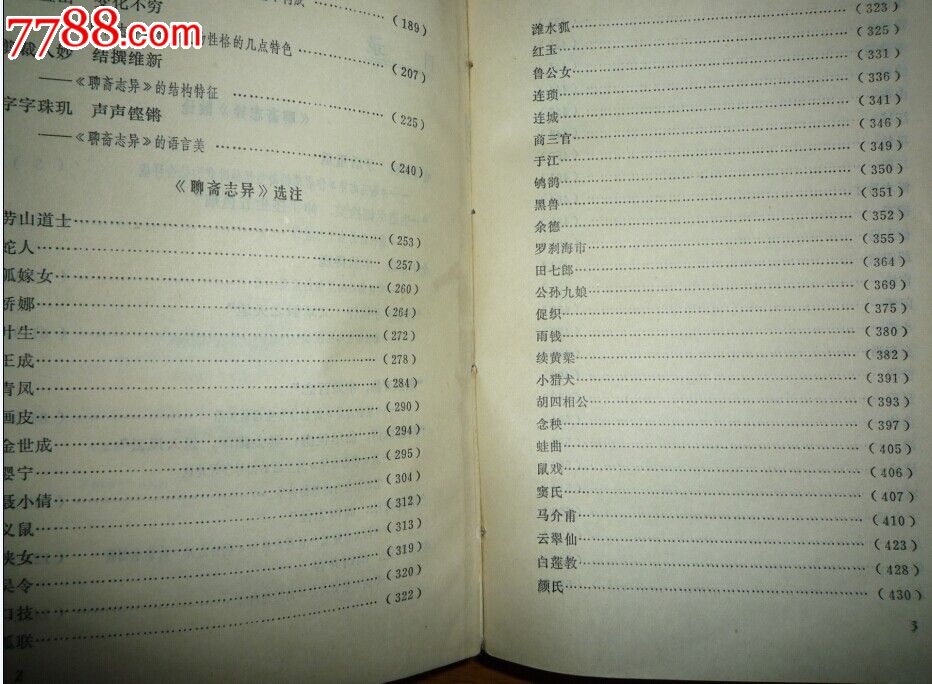 7788.com
化不穷
(189)
性格的几点特色
(207)
裁入妙 结撰维新
——《聊斋志异》的结构特征 (225)
字字珠玑 声声铿锵
——《聊斋志异》的语言美 (240)
《聊斋志异》选注
劳山道士 (253)
蛇人 (257)
狐嫁女 (260)
娇娜 (264)
叶生 (272)
王成 (278)
青凤 (284)
画皮 (290)
金世成 (294)
婴宁 (295)
聂小倩 (304)
义鼠 (312)
侠女 (313)
吴令 (319)
口技 (320)
狐联 (322)
2
潍水狐 (323)
红玉 (325)
鲁公女 (331)
连琐 (336)
连城 (341)
商三官 (346)
于江 (349)
鸲鹆 (350)
黑兽 (351)
余德 (352)
罗刹海市 (355)
田七郎 (364)
公孙九娘 (369)
促织 (375)
雨钱 (380)
续黄粱 (382)
小猎犬 (391)
胡四相公 (393)
念秧 (397)
蛙曲 (405)
鼠戏 (406)
窦氏 (407)
马介甫 (410)
云翠仙 (423)
白莲教 (428)
颜氏 (430)
3